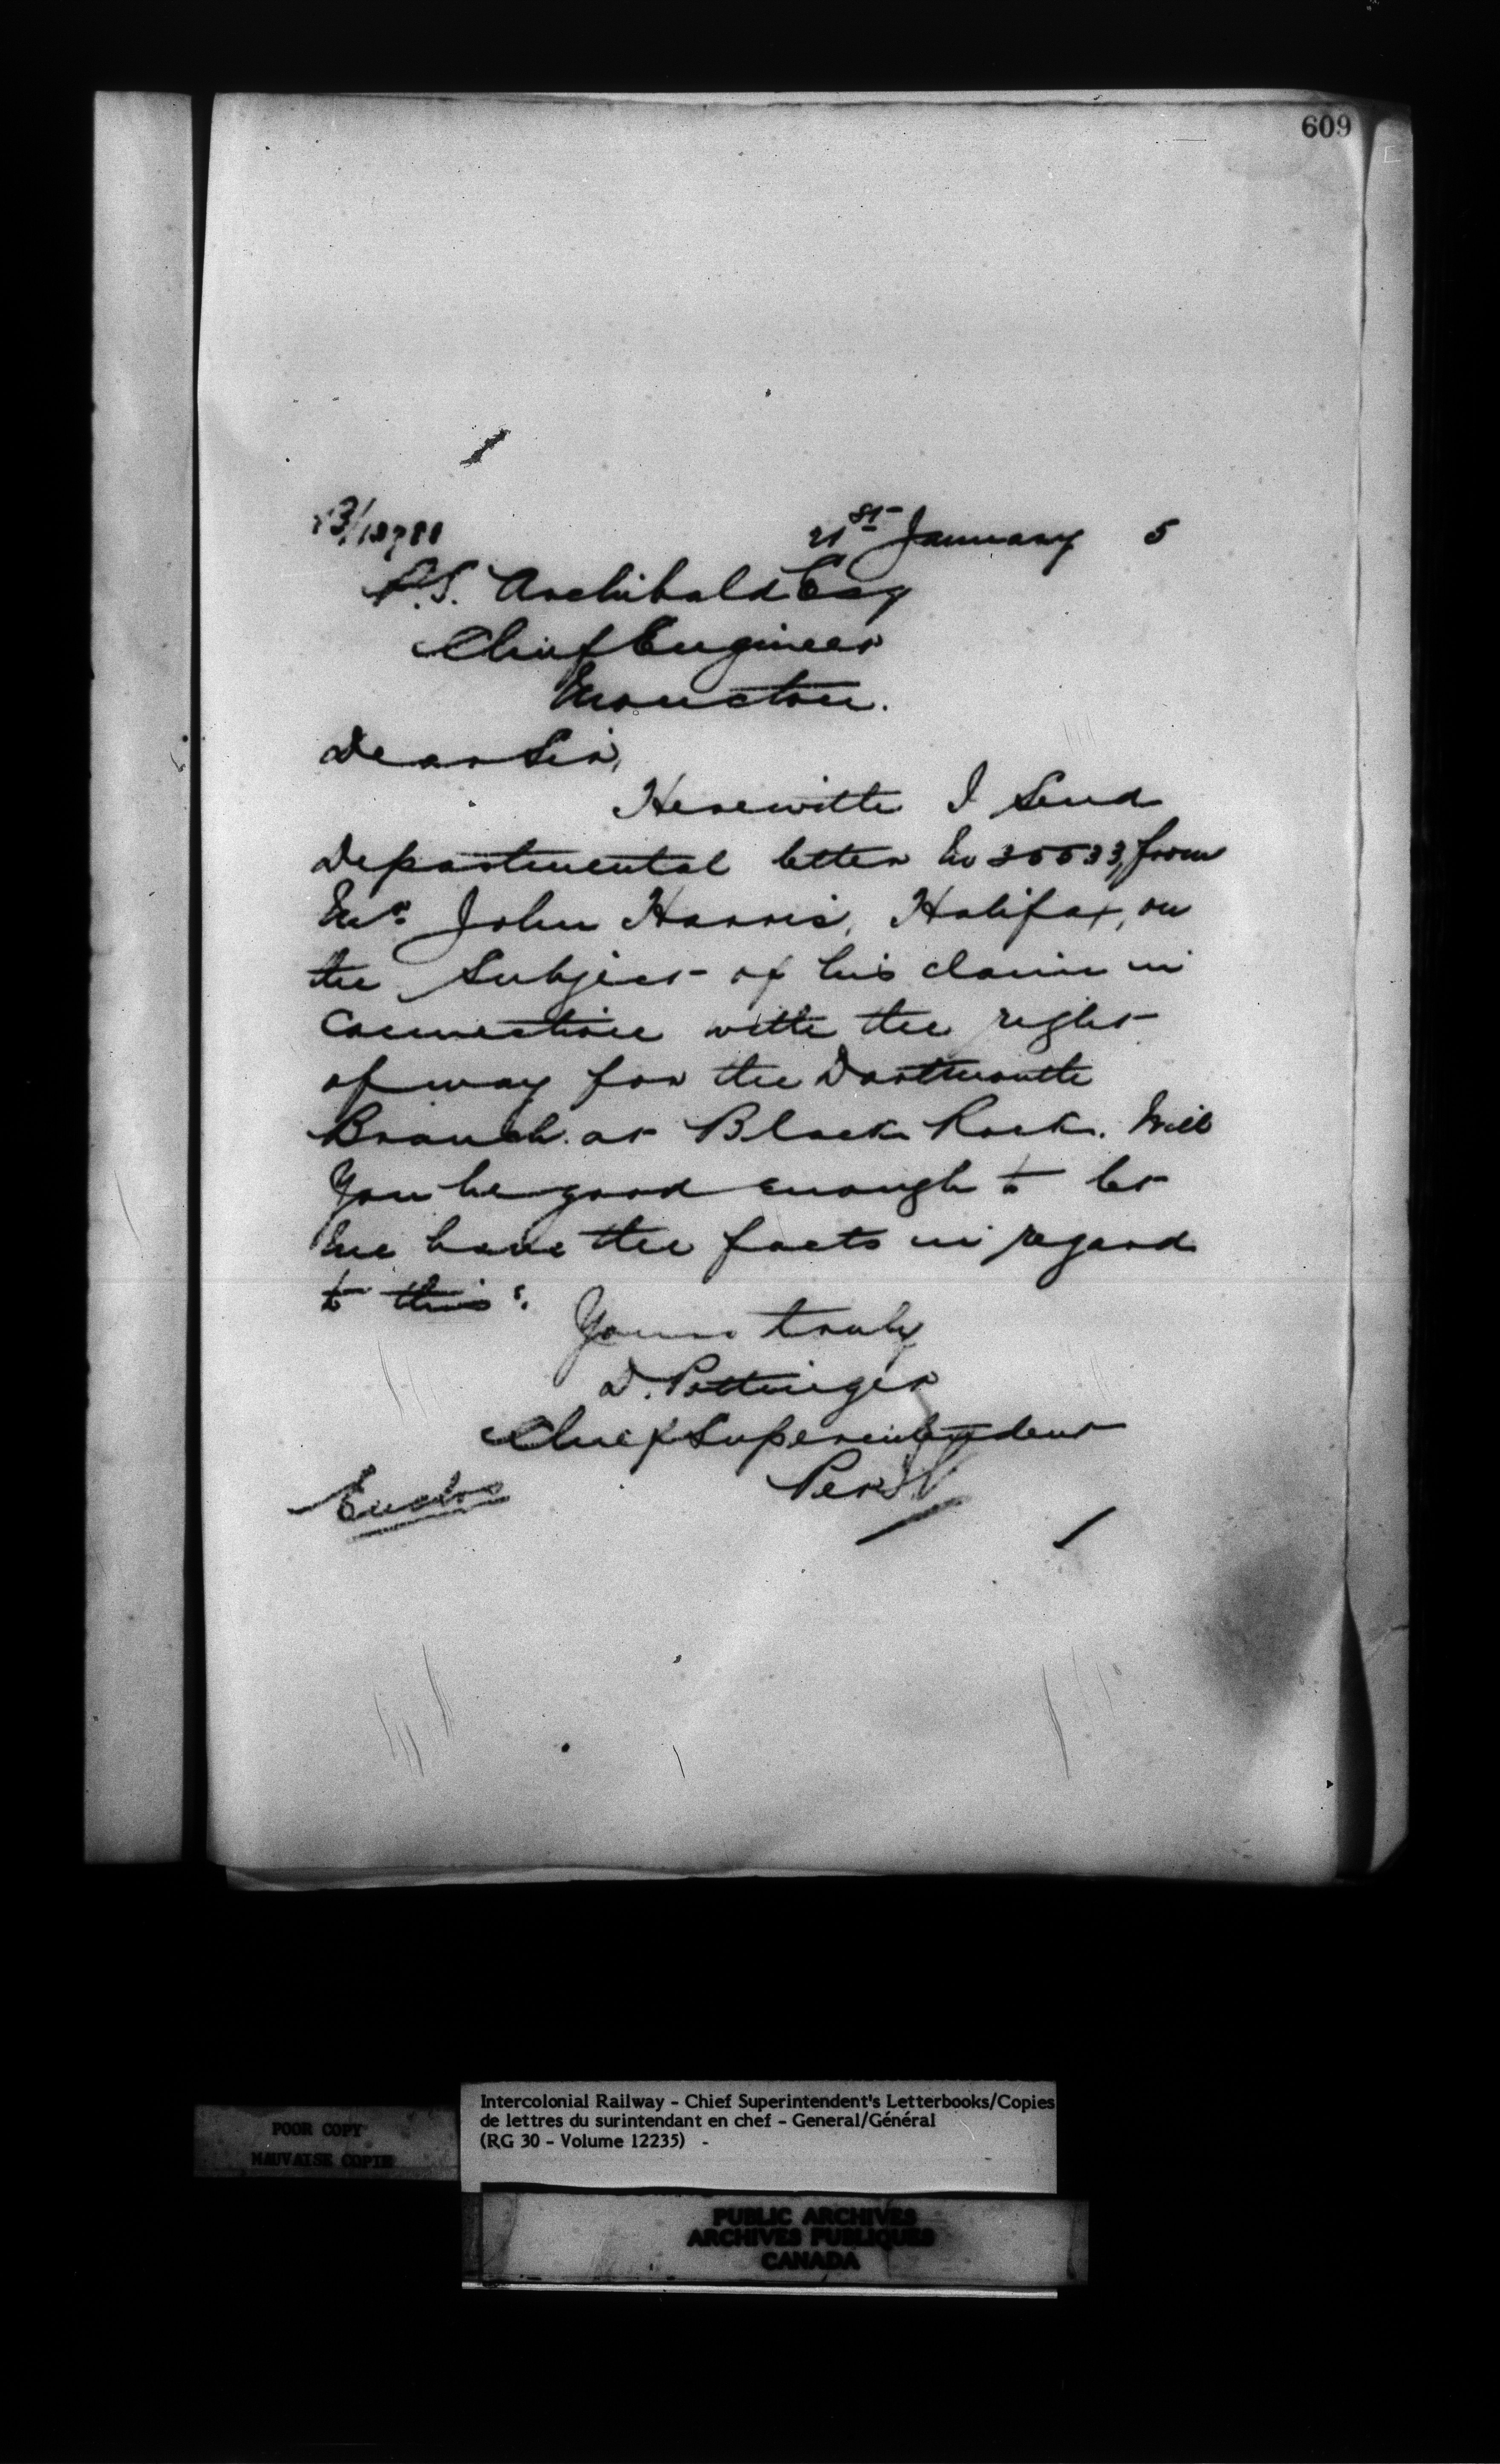 609
21st January 5
P.S. Archibald Esq
Chief Engineer
Moncton.
Dear Sir,
Herewith I send
Departmental letter No 35533, from
Mr. John Harris, Halifax, on
the Subject of his claim in
Connection with the right
of way for the Dartmouth
Branch at Black Rock. Will
You be good enough to let
me have the facts in regard
to this.
Yours truly
D. Pottinger
Chief Superintendent
Per
Enclos
POOR COPY
MAUVAISE COPIE
Intercolonial Railway - Chief Superintendent's Letterbooks/Copies
de lettres du surintendant en chef - General/Général
(RG 30 - Volume 12235) -
PUBLIC ARCHIVES
ARCHIVES PUBLIQUES
CANADA